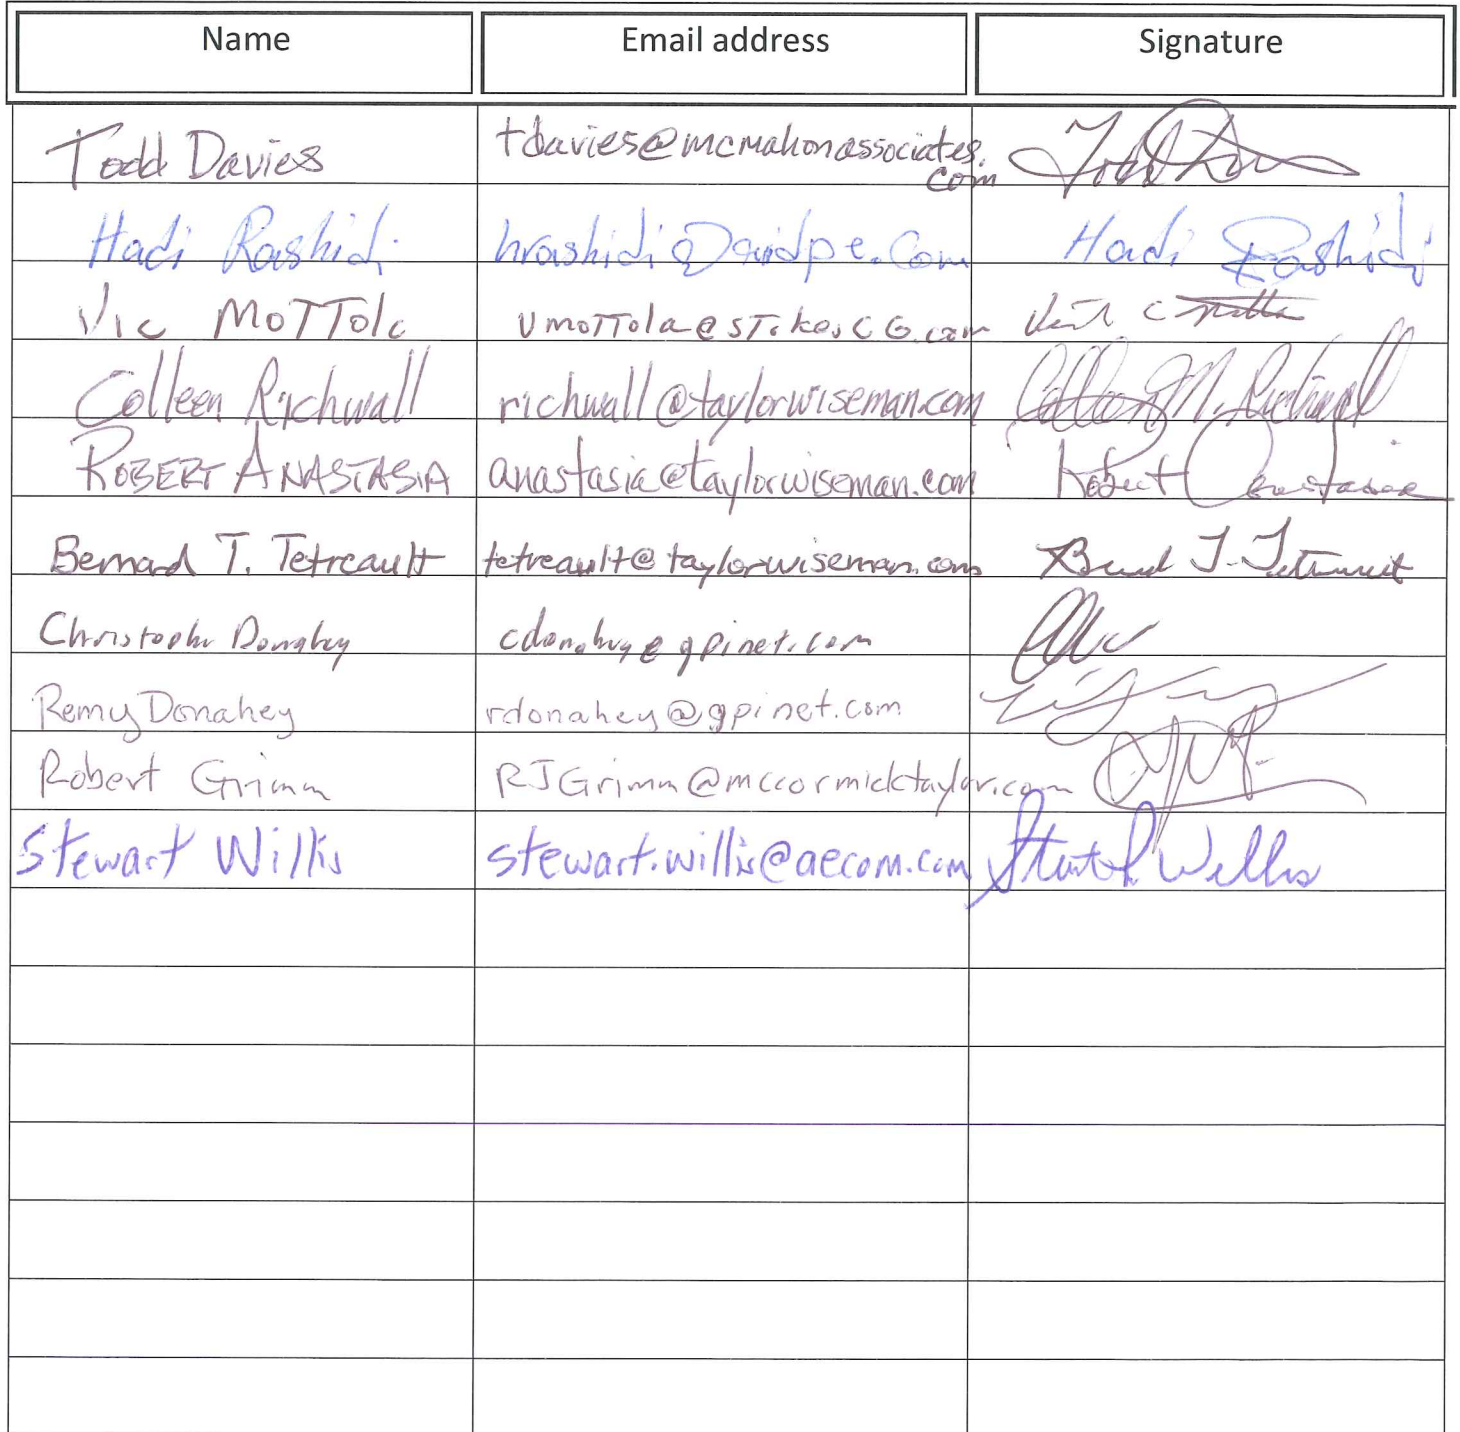 Name Email address Signature
Todd Davies tdavies@mcmahonassociates.
com
Hadi Rashidi hrashidi@avidpe.com Hadi Rashidi
Vic MoTTola vmoTTola@sTokesCG.com
Colleen Richwall richwall@taylorwiseman.com Colleen M. Richwall
ROBERT ANASTASIA anastasia@taylorwiseman.com Robert Anastasia
Bernard T. Tetreault tetreault@taylorwiseman.com Bernard T. Tetreault
Christopher Donahey cdonahey@gpinet.com
Remy Donahey rdonahey@gpinet.com
Robert Grimm RJGrimm@mccormicktaylor.com
Stewart Willis stewart.willis@aecom.com Stewart Willis